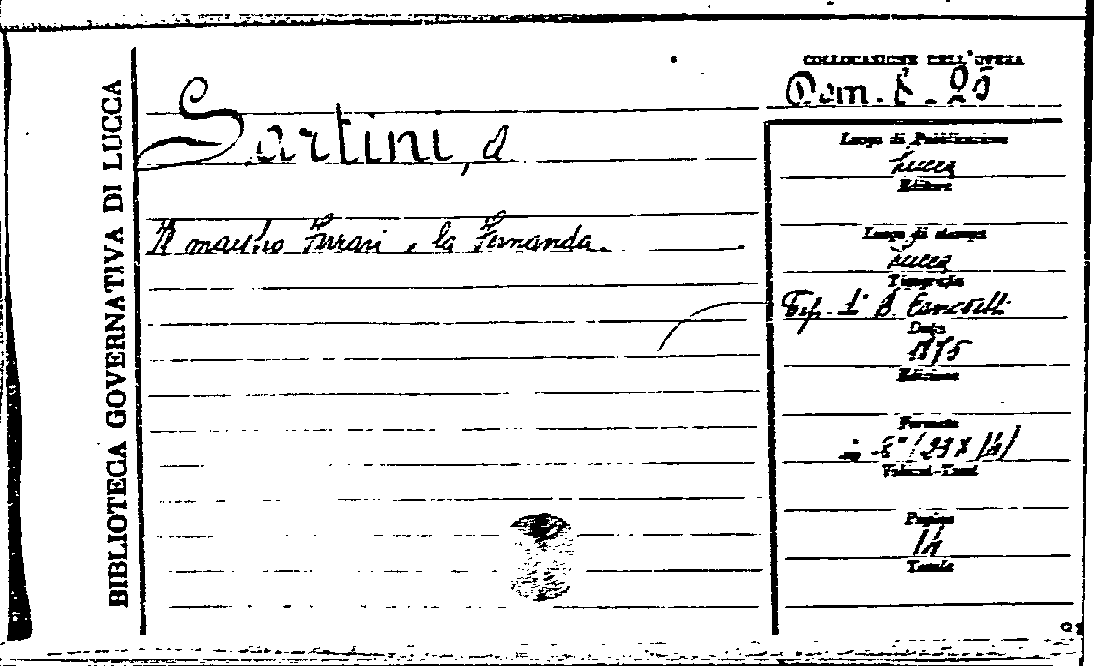 BIBLIOTECA GOVERNATIVA DI LUCCA
COLLOCAZIONE DELL'OPERA
Sartini, A
Il maestro Ferrari e la Fernanda.
Luogo di Pubblicazione
Lucca
Editore
Luogo di stampa
Lucca
Tipografia
Tip. B. Canovetti
Data
1875
Edizione
Formato
in-8°
Volumi-Tomi
Pagine
14
Tavole